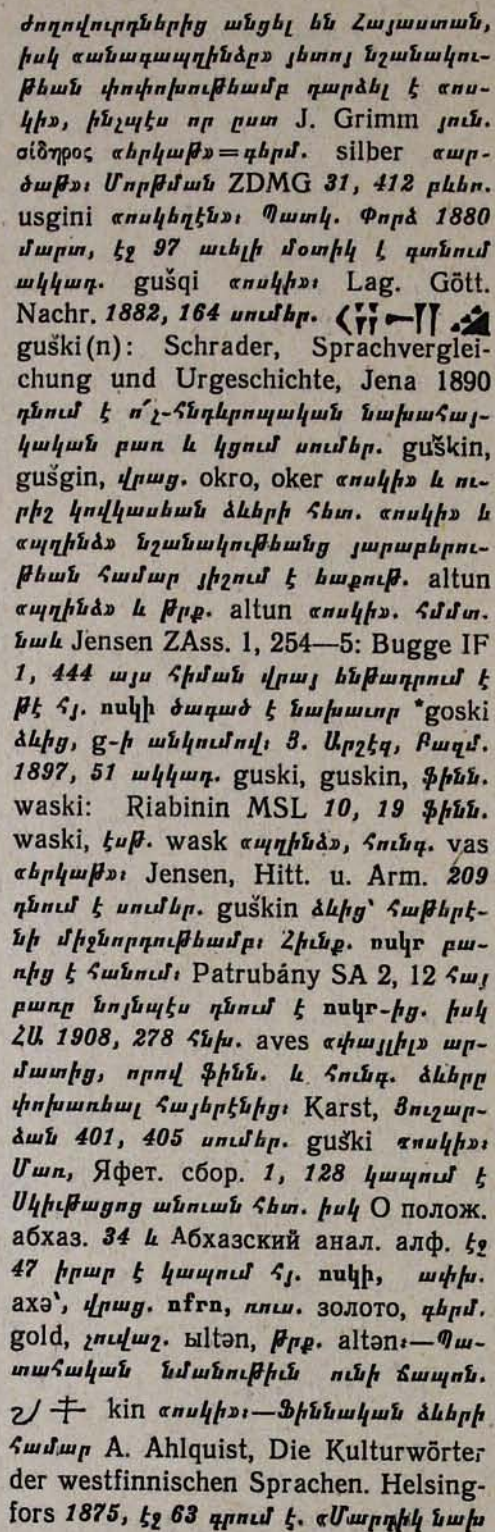 ժողովուրդներից անցել են Հայաստան,
իսկ «անագապղինձը» յետոյ նշանակու-
թեան փոփոխութեամբ դարձել է «ոս-
կի», ինչպէս որ ըստ J. Grimm յուն.
σίδηρος «երկաթ»=գերմ. silber «ար-
ծաթ»։ Մորթման ZDMG 31, 412 բևեռ.
usgini «ոսկեղէն»։ Պատկ. Փորձ 1880
մարտ, էջ 97 աւելի մօտիկ է գտնում
ակկադ. gušqi «ոսկի»։ Lag. Gött.
Nachr. 1882, 164 սումեր.
guški(n): Schrader, Sprachverglei-
chung und Urgeschichte, Jena 1890
դնում է ո՛չ-հնդևրոպական նախահայ-
կական բառ և կցում սումեր. guškin,
gušgin, վրաց. okro, oker «ոսկի» և ու-
րիշ կովկասեան ձևերի հետ. «ոսկի» և
«պղինձ» նշանակութեանց յարաբերու-
թեան համար յիշում է եաքութ. altun
«պղինձ» և թրք. altun «ոսկի». Հմմտ.
նաև Jensen ZAss. 1, 254—5: Bugge IF
1, 444 այս հիման վրայ ենթադրում է
թէ հյ. ոսկի ծագած է նախաւոր *goski
ձևից, g-ի անկումով։ Յ. Արշէզ, Բազմ.
1897, 51 ակկադ. guski, guskin, ֆինն.
waski: Riabinin MSL 10, 19 ֆինն.
waski, էսթ. wask «պղինձ», հունգ. vas
«երկաթ»։ Jensen, Hitt. u. Arm. 209
դնում է սումեր. guškin ձևից՝ հաթերէ-
նի միջնորդութեամբ։ Հիւնք. ոսկր բա-
ռից է հանում։ Patrubány SA 2, 12 հայ
բառը նոյնպէս դնում է ոսկր-ից. իսկ
ՀԱ 1908, 278 հնխ. aves «փայլիլ» ար-
մատից, որով ֆինն. և հունգ. ձևերը
փոխառեալ հայերէնից։ Karst, Յուշար-
ձան 401, 405 սումեր. guški «ոսկի»։
Մառ, Яфет. сбор. 1, 128 կապում է
Սկիւթացոց անուան հետ. իսկ О полож.
абхаз. 34 և Абхазский анал. алф. էջ
47 իրար է կապում հյ. ոսկի, ափխ.
ахә՝, վրաց. ոքրո, ռուս. золото, գերմ.
gold, չուվաշ. ылtәn, թրք. altәn։—Պա-
տահական նմանութիւն ունի ճապոն.
kin «ոսկի»։—Ֆիննական ձևերի
համար A. Ahlquist, Die Kulturwörter
der westfinnischen Sprachen. Helsing-
fors 1875, էջ 63 գրում է. «Մարդիկ նախ